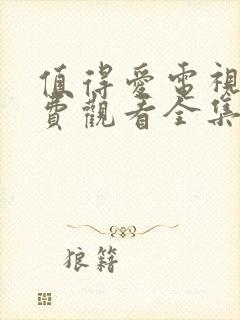 值得愛電視
費觀看全集
狼籍